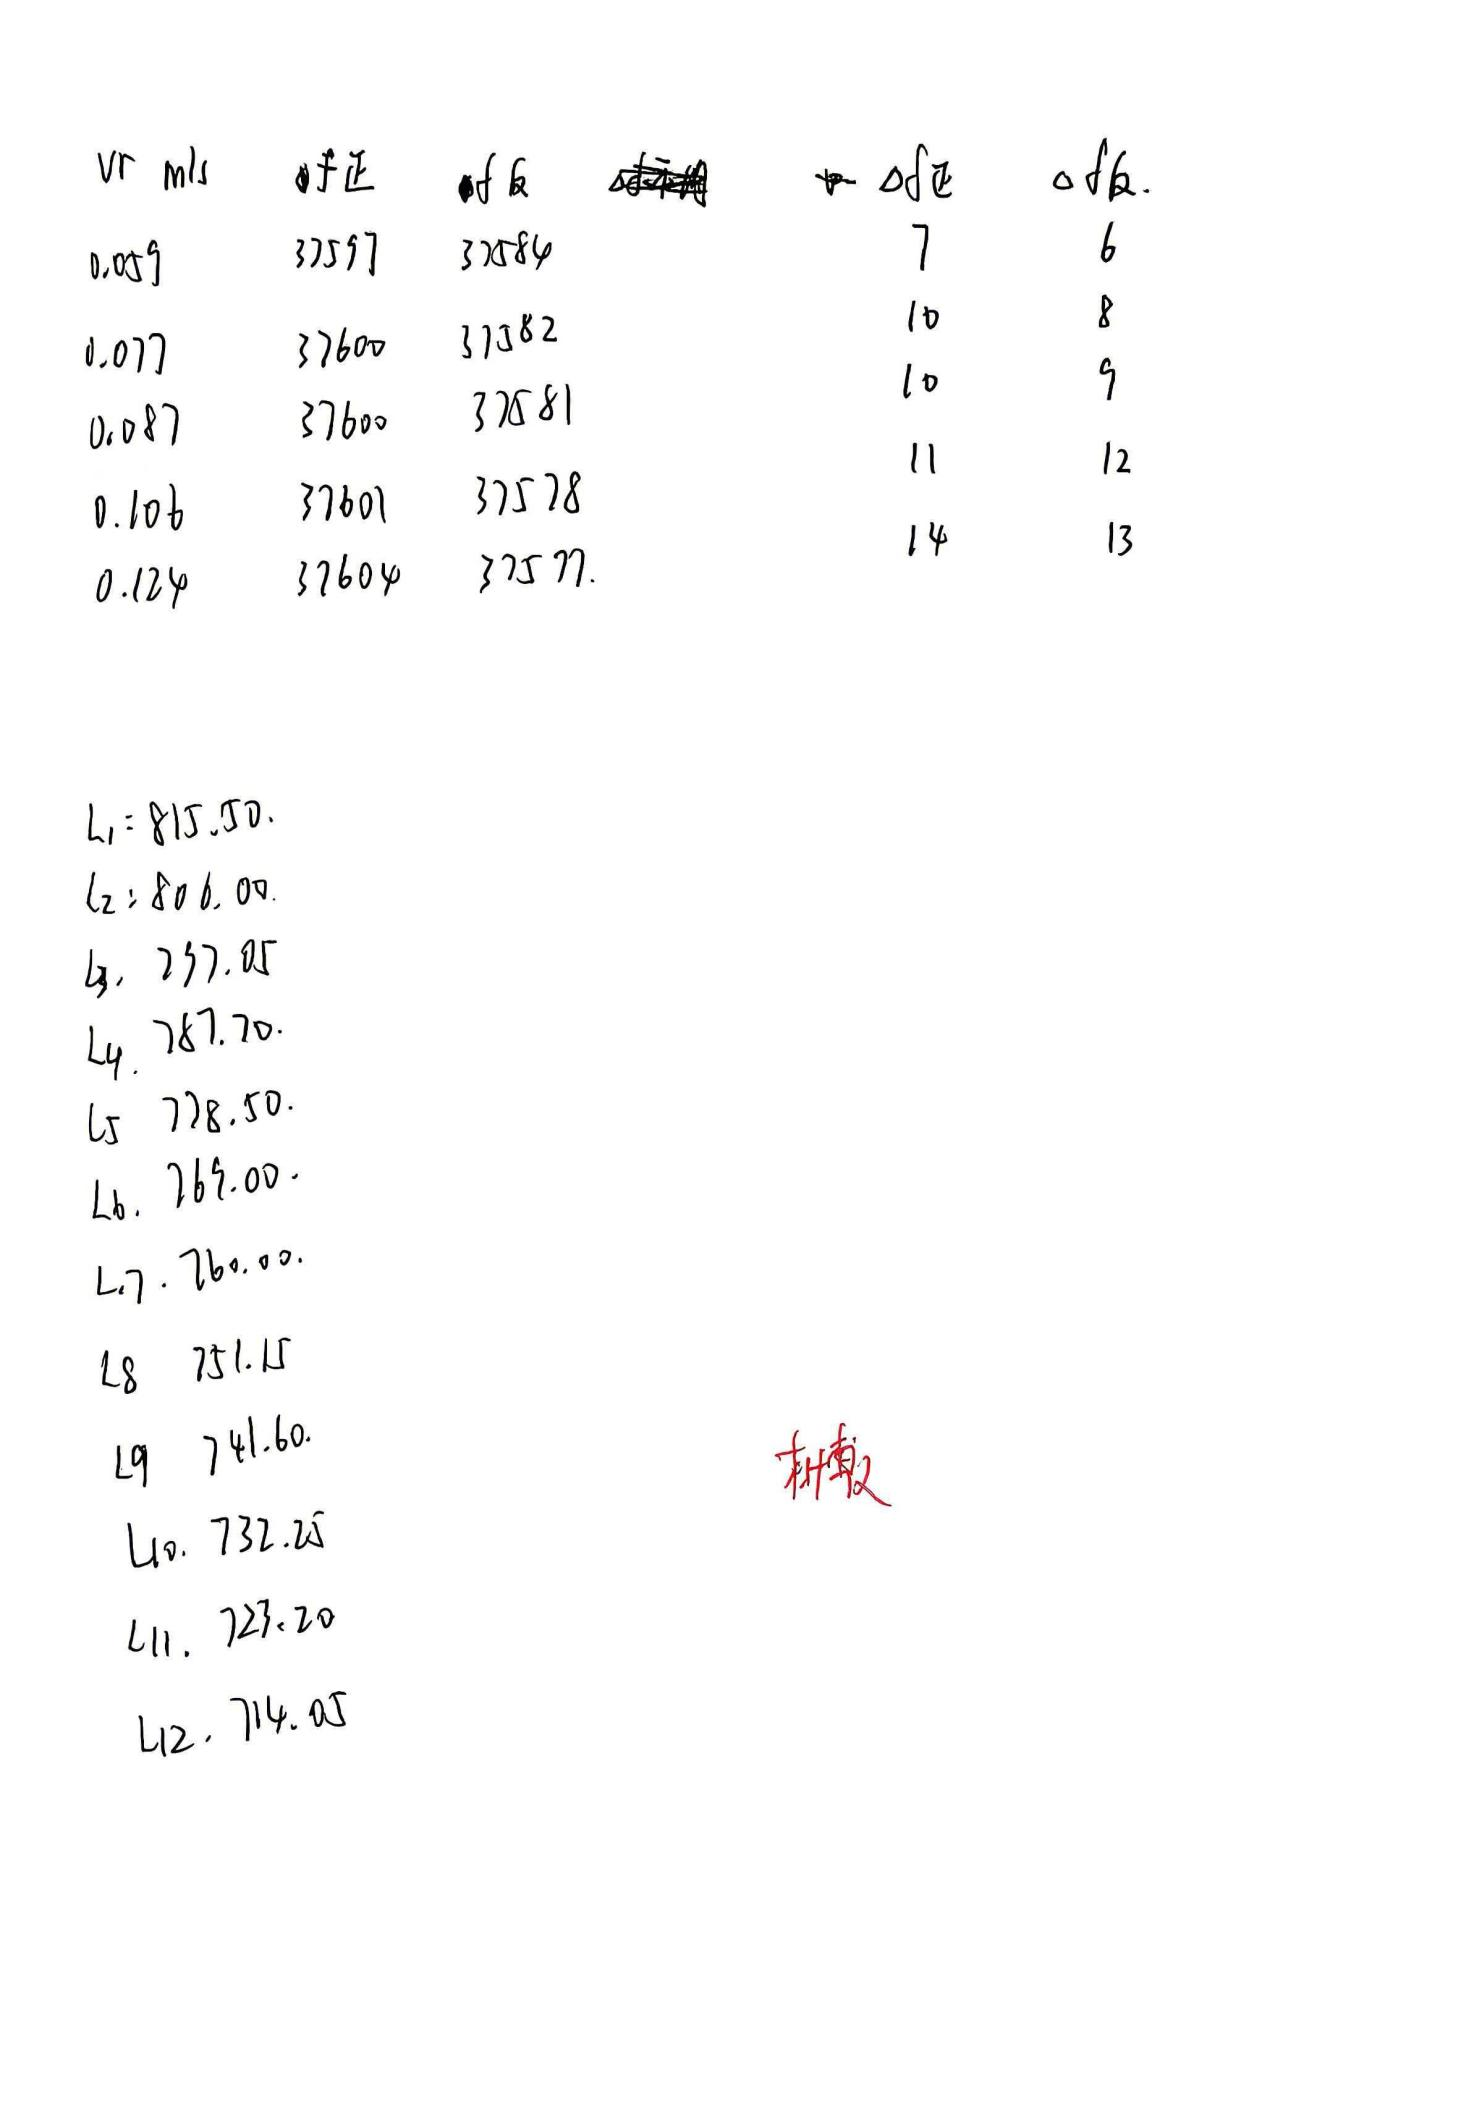 vr m/s f正 f反 Δf正 Δf反.
0.059 37597 37584 7 6
0.077 37600 37582 10 8
0.087 37600 37581 10 9
0.106 37601 37578 11 12
0.124 37604 37577. 14 13
L1=815.50.
L2:806.00.
L3. 797.05
L4. 787.70.
L5 778.50.
L6. 769.00.
L.7. 760.00.
L8 751.15
L9 741.60.
L10. 732.25
L11. 723.20
L12. 714.05